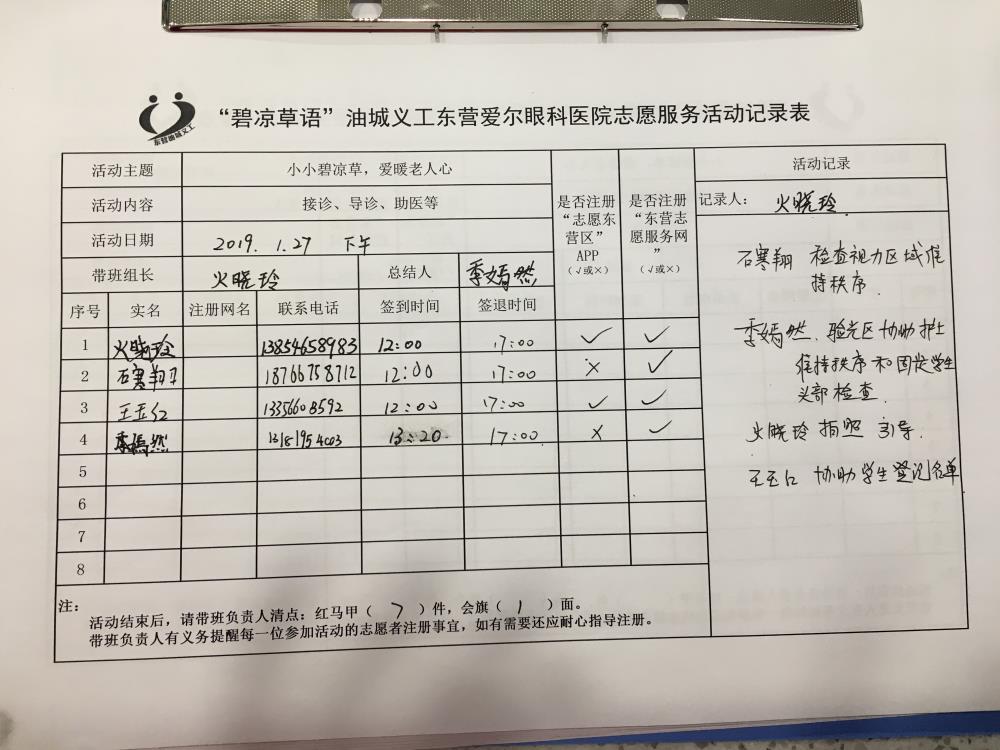 东营油城义工
“碧凉草语”油城义工东营爱尔眼科医院志愿服务活动记录表
活动主题 小小碧凉草，爱暖老人心
活动内容 接诊、导诊、助医等
活动日期 2019. 1.27 下午
带班组长 火晓玲 总结人 季嫣然
是否注册“志愿东营区”APP（√或×）
是否注册“东营志愿服务网”（√或×）
序号 实名 注册网名 联系电话 签到时间 签退时间
1 火晓玲 13854658983 12:00 17:00 √ √
2 石寒翔 18766758712 12:00 17:00 × √
3 王玉红 13356608592 12:00 17:00 √ √
4 季嫣然 13:20 17:00 × √
5
6
7
8
活动记录
记录人： 火晓玲.
石寒翔 检查视力区域维
持秩序.
季嫣然. 验光区协助护士
维持秩序和固定学生
头部检查.
火晓玲 拍照 引导.
王玉红 协助学生登记名单
注：
活动结束后，请带班负责人清点：红马甲（ 7 ）件，会旗（ 1 ）面。
带班负责人有义务提醒每一位参加活动的志愿者注册事宜，如有需要还应耐心指导注册。